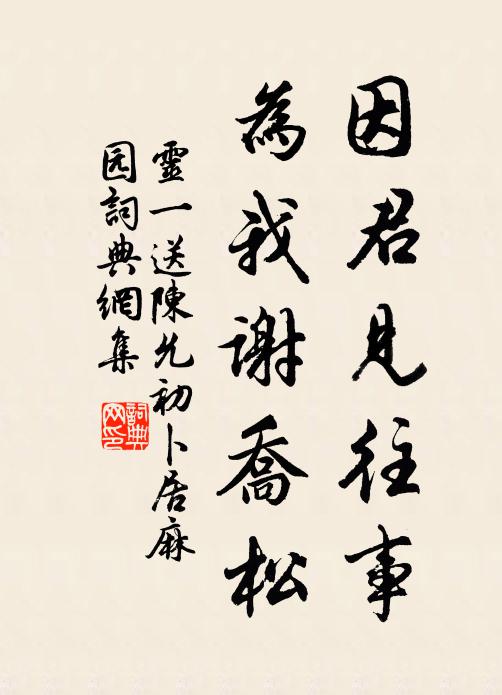 因君見往事
為我謝喬松
靈一送陳允初卜居麻
园詞典網集
詞典网印